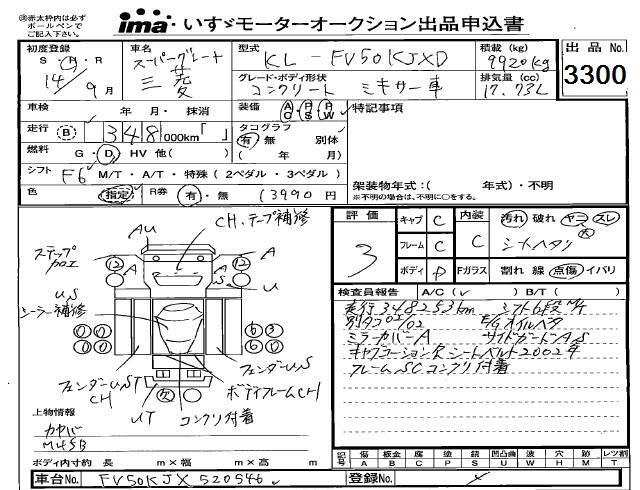 ㊟赤太枠内は必ず
ボールペンで
ご記入下さい。
ima いすゞモーターオークション出品申込書
初度登録 S・H・R 14年 9月
車名 スーパーグレート 三菱
型式 KL-FV50KJXD
積載 (kg) 9920kg
出品No. 3300
グレード・ボディ形状 コンクリート ミキサー車
排気量 (cc) 17.73L
車検 年・月・抹消
装備 AC PS PW
特記事項
走行 B 348,000km「 」
タコグラフ 有 無 別体
( 年 月)
燃料 G・D・HV 他( )
シフト F6 M/T・A/T・特殊(2ペダル・3ペダル)
架装物年式:( 年式)・不明
※不明の場合は、不明に○をする。
色 指定 R券 有・無 13990円
CH、テープ補修
AU
ステップ
加工
12 A A 12
S
US
シーラー補修
0 0 6 3
0 0 0 0
フェンダーUS
フェンダーUST
CH
ボディフレームCH
UT 欠 コンクリ付着
評価 3
キャブ C
フレーム C
ボディ P
内装 C
汚れ 破れ ヤニ スレ
大
シートヘタリ
Fガラス 割れ 線 点傷 イバリ
検査員報告 A/C( ✓ ) B/T( )
表行348253km シフト6段M/T
別タコ02/02 E/Gオイルヘタ
ミラーカバーA サイドガードAS
キャブコーション欠 シートベルト2002年
フレームSC コンクリ付着
上物情報
カヤバ
MR45B
ボディ内寸約 長 m×幅 m×高 m
記号 傷A 板金B 腐C 塗P 錆S 凹凸曲U 凹W 穴H 跡M レツ割T
車台No. FV50KJX520546
登録No.